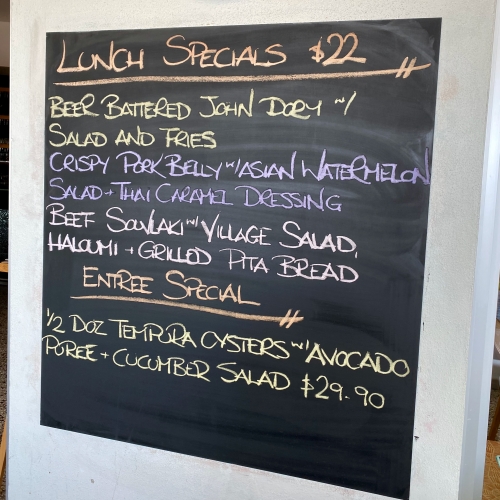 LUNCH SPECIALS $22
BEER BATTERED JOHN DORY w/
SALAD AND FRIES
CRISPY PORK BELLY w/ ASIAN WATERMELON
SALAD + THAI CARAMEL DRESSING
BEEF SOUVLAKI w/ VILLAGE SALAD,
HALOUMI + GRILLED PITA BREAD
ENTREE SPECIAL
1/2 DOZ TEMPURA OYSTERS w/ AVOCADO
PUREE + CUCUMBER SALAD $29.90